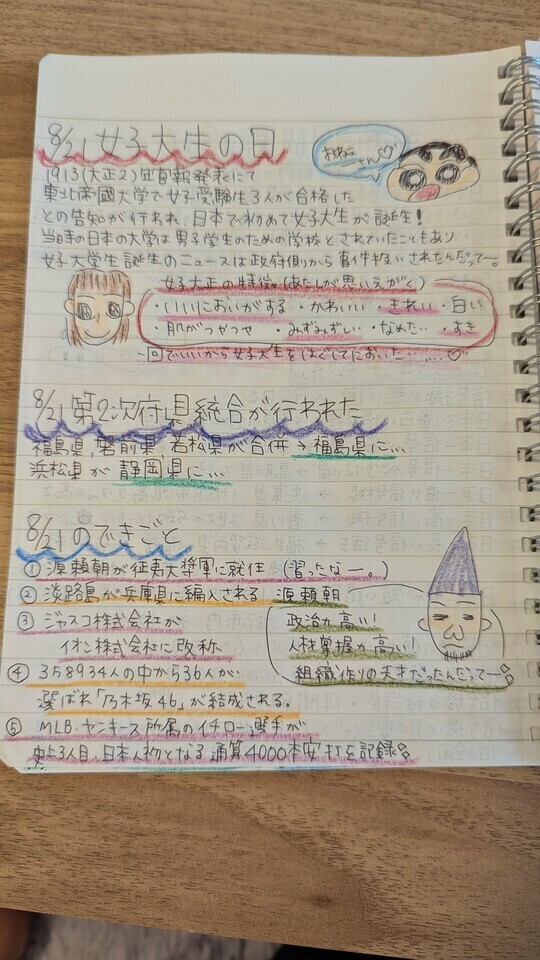 8/21 女子大生の日
おねいさん♡
1913(大正2)年官報発表にて
東北帝國大学で女子受験生3人が合格した
との告知が行われ、日本で初めて女子大生が誕生！
当時の日本の大学は男子学生のための学校とされていたこともあり
女子大学生誕生のニュースは政府側から事件扱いされたんだってー。
女子大正の特徴(あたしが思いえがく)
・いいにおいがする ・かわいい ・きれい ・白い
・肌がつやつや ・みずみずしい ・なめたい ・すき
一回でいいから女子大生をはぐしてにおいたい……♡
8/21 第2次府県統合が行われた
福島県、磐前県、若松県が合併→福島県に…
浜松県が静岡県に…
8/21のできごと
① 源頼朝が征夷大将軍に就任 (習ったなー。)
② 淡路島が兵庫県に編入される
③ ジャスコ株式会社が
イオン株式会社に改称
源頼朝
政治力高い！
人材掌握力高い！
組織作りの天才だったんだってー
④ 358934人の中から36人が
選ばれ「乃木坂46」が結成される。
⑤ MLB・ヤンキース所属のイチロー選手が
史上3人目、日本人初となる通算4000本安打を記録